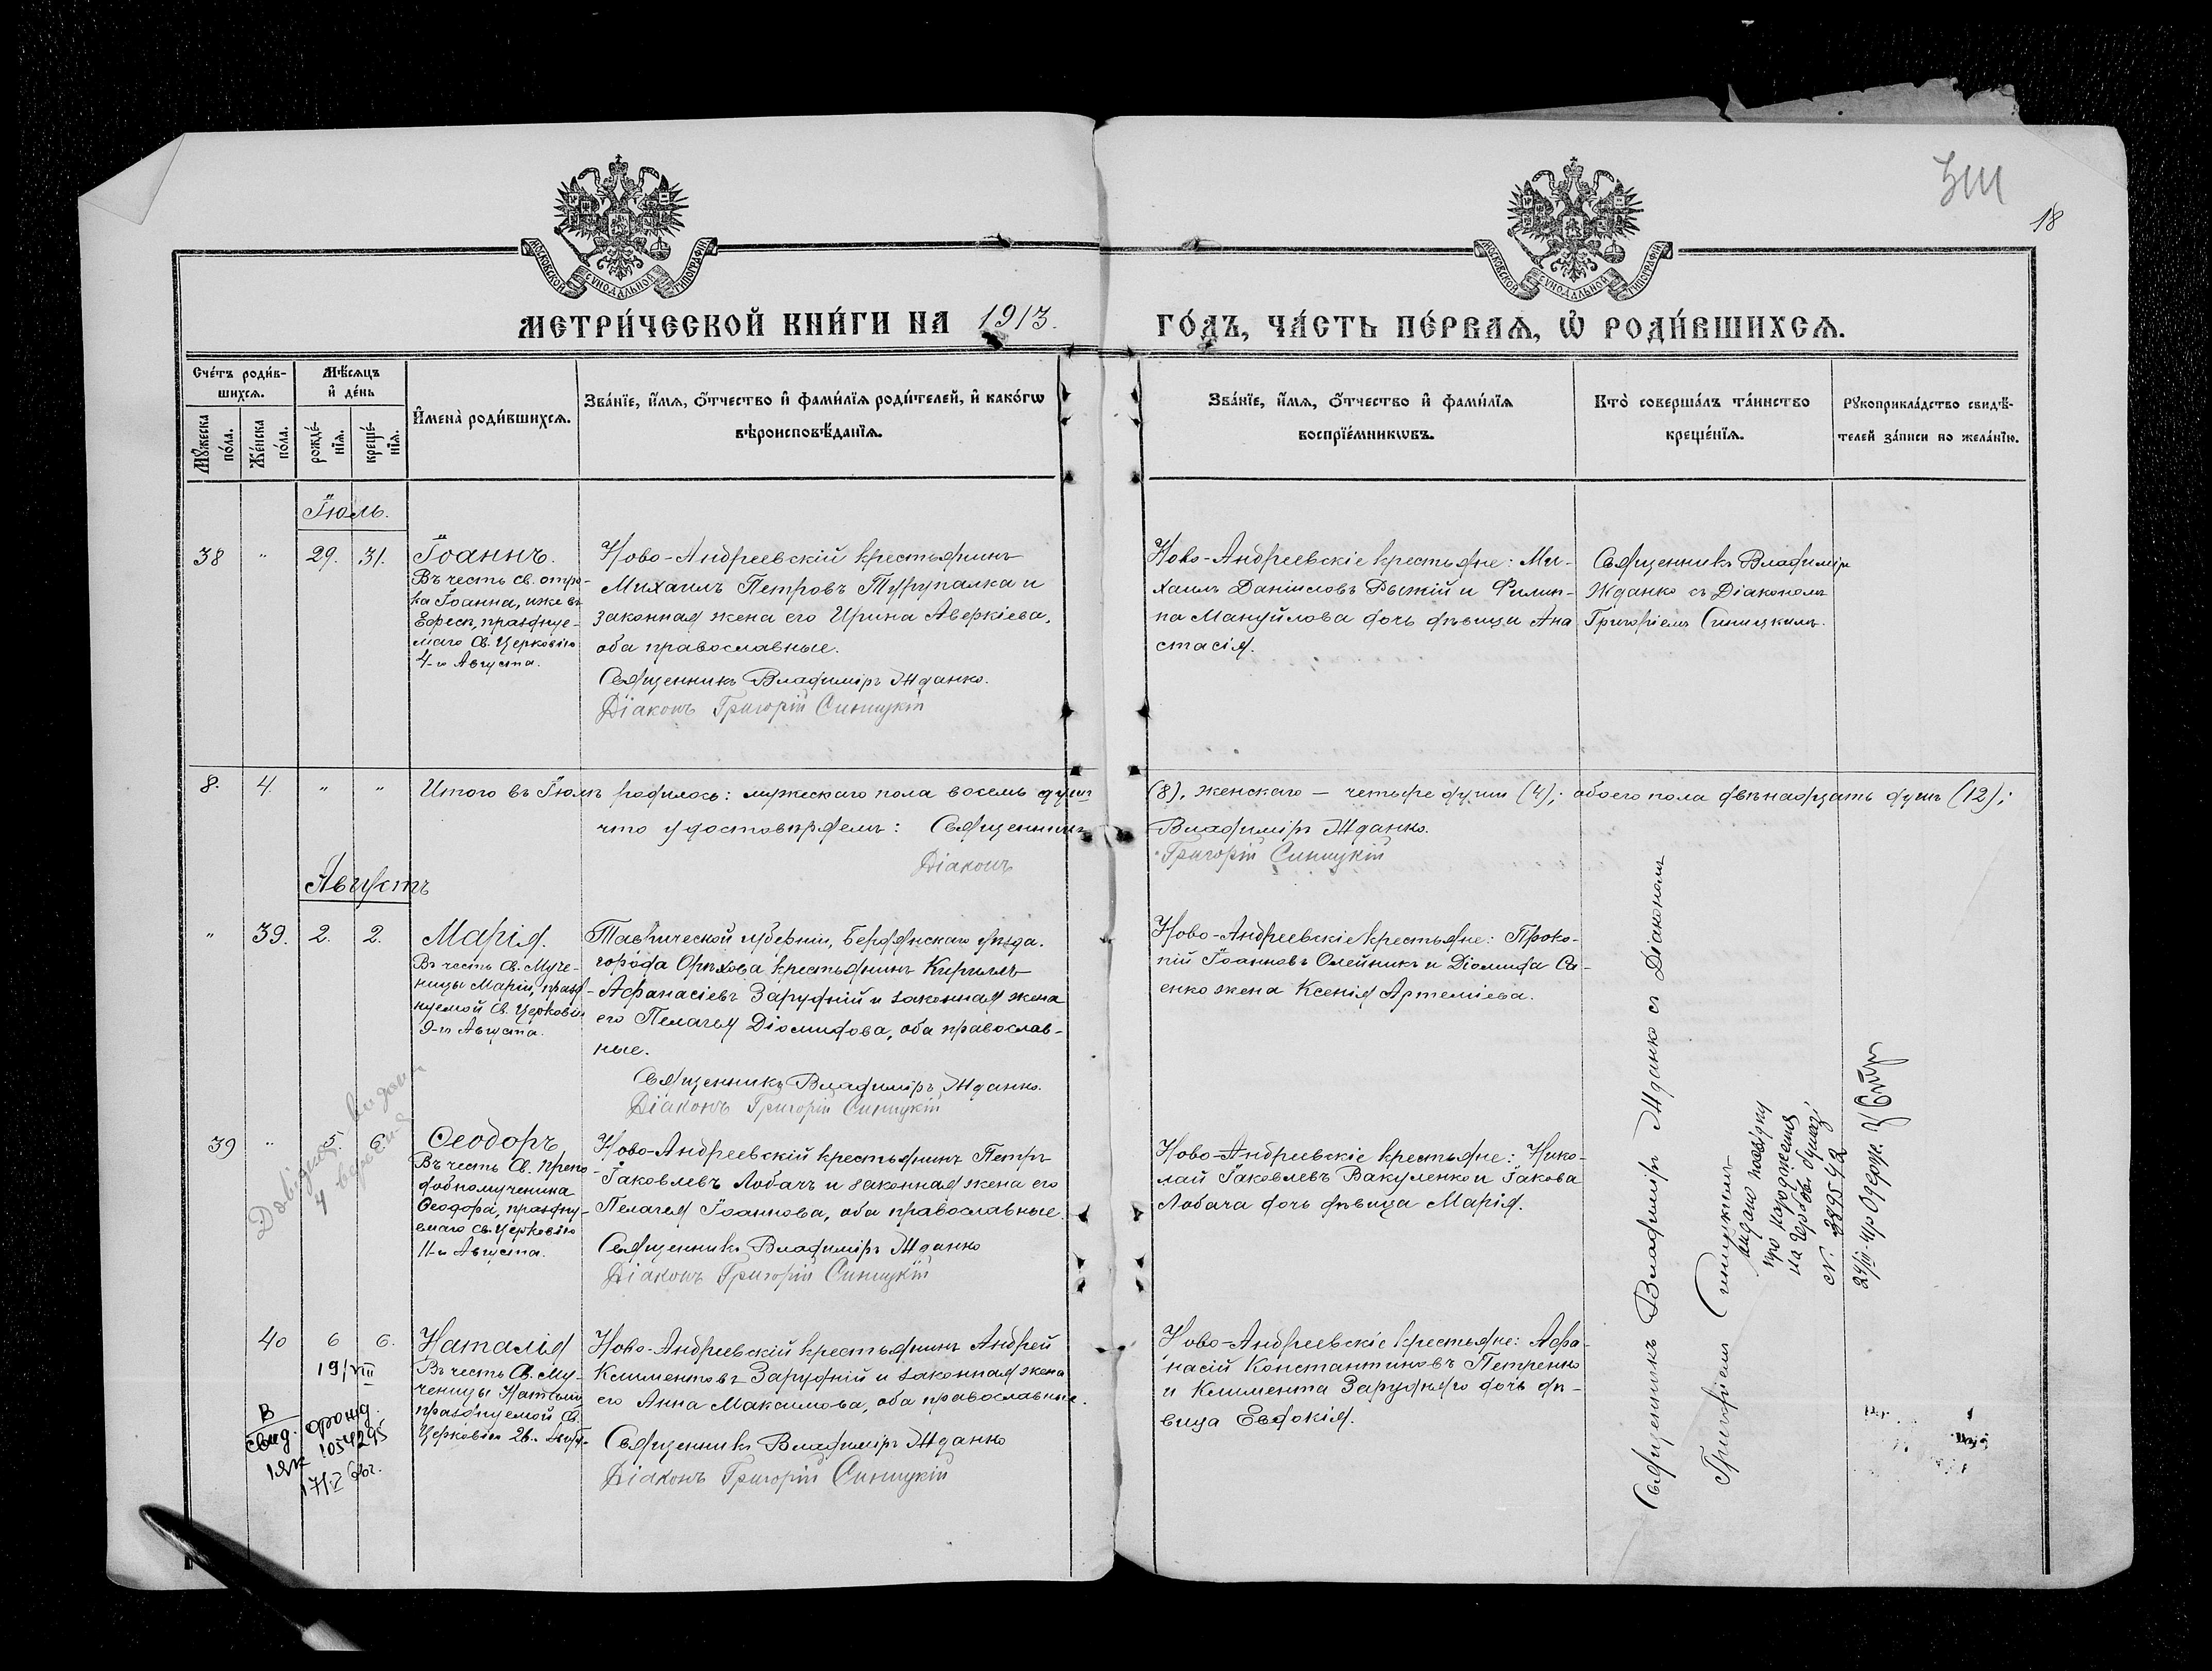 ЗШ
18
МОСКОВСКОЙ СѴНОДАЛЬНОЙ ТИПОГРАФІИ
МОСКОВСКОЙ СѴНОДАЛЬНОЙ ТИПОГРАФІИ
МЕТРИ́ЧЕСКОЙ КНИ́ГИ НА 1913.
ГО́ДЪ, ЧА́СТЬ ПЕ́РВАѦ, Ѡ҆ РОДИ́ВШИХСѦ.
Сче́тъ роди́в-
шихсѧ.
Мꙋ́жеска по́ла.
Же́нска по́ла.
Мѣ́сѧцъ
и҆ де́нь
рожде́-
нїѧ.
креще́-
нїѧ.
И҆мена̀ роди́вшихсѧ.
Зва́нїе, и҆́мѧ, ѻ҆́тчество и҆ фами́лїѧ роди́телей, и҆ како́гѡ
вѣроисповѣ́данїѧ.
Зва́нїе, и҆́мѧ, ѻ҆́тчество и҆ фами́лїѧ
воспрїе́мникѡвъ.
Кто̀ соверша́лъ та́инство
креще́нїѧ.
Рꙋкоприкла́дство свидѣ́-
телей за́писи по жела́нїю.
Іюль.
38 " 29. 31.
Іоаннъ.
Въ честь св. отро-
ка Іоанна, иже въ
Ефесѣ, празднуе-
маго Св. Церковію
4-го Августа.
Ново-Андреевскій крестьянинъ
Михаилъ Петровъ Турупалка и
законная жена его Ирина Аверкіева,
оба православные.
Священникъ Владиміръ Жданко.
Діаконъ Григорій Синицкій
Ново-Андреевскіе крестьяне: Ми-
хаилъ Даніиловъ Рыжій и Филип-
па Мануйлова дочь дѣвица Ана
стасія.
Священникъ Владиміръ
Жданко съ Діакономъ
Григоріемъ Синицкимъ.
8. 4. " "
Итого въ Іюлѣ родилось: мужескаго пола восемь душъ (8), женскаго — четыре души (4); обоего пола двѣнадцать душъ (12);
что удостовѣряемъ: Священникъ Владиміръ Жданко.
Діаконъ Григорій Синицкій
Августъ
" 39. 2. 2.
Марія.
Въ честь Св. Муче-
ницы Маріи, празд-
нуемой Св. Церковію
9-го Августа.
Таврической губерніи, Бердянскаго уѣзда.
города Орѣхова крестьянинъ Кириллъ
Афанасіевъ Зарудній и законная жена
его Пелагея Діомидова, оба православ-
ные.
Священникъ Владиміръ Жданко.
Діаконъ Григорій Синицкій
Ново-Андреевскіе крестьяне: Проко-
пій Іоанновъ Олейникъ и Діомида Са-
енко жена Ксенія Артеміева.
39 " 5. 6.
Ѳеодоръ
Въ честь Св. препо
добномученика
Ѳеодора, праздну-
емаго св. Церковію
11-го Августа.
Ново-Андреевскій крестьянинъ Петръ
Іаковлевъ Лобачъ и законная жена его
Пелагея Іоаннова, оба православные.
Священникъ Владиміръ Жданко
Діаконъ Григорій Синицкій
Ново-Андреевскіе крестьяне: Нико-
лай Іаковлевъ Вакуленко и Іакова
Лобача дочь дѣвица Марія.
40 6 6.
19/VIII
Наталія
Въ честь Св. Му-
ченицы Наталіи
празднуемой Св.
Церковію 26.
Ново-Андреевскій крестьянинъ Андрей
Климентовъ Зарудній и законная жена
его Анна Максимова, оба православные.
Священникъ Владиміръ Жданко
Діаконъ Григорій Синицкій
Ново-Андреевскіе крестьяне: Афа-
насій Константиновъ Петренко
и Климента Зарудняго дочь дѣ-
вица Евдокія.
Священникъ Владиміръ Жданко съ Діакономъ
Григоріемъ Синицкимъ
видано
про народження
на